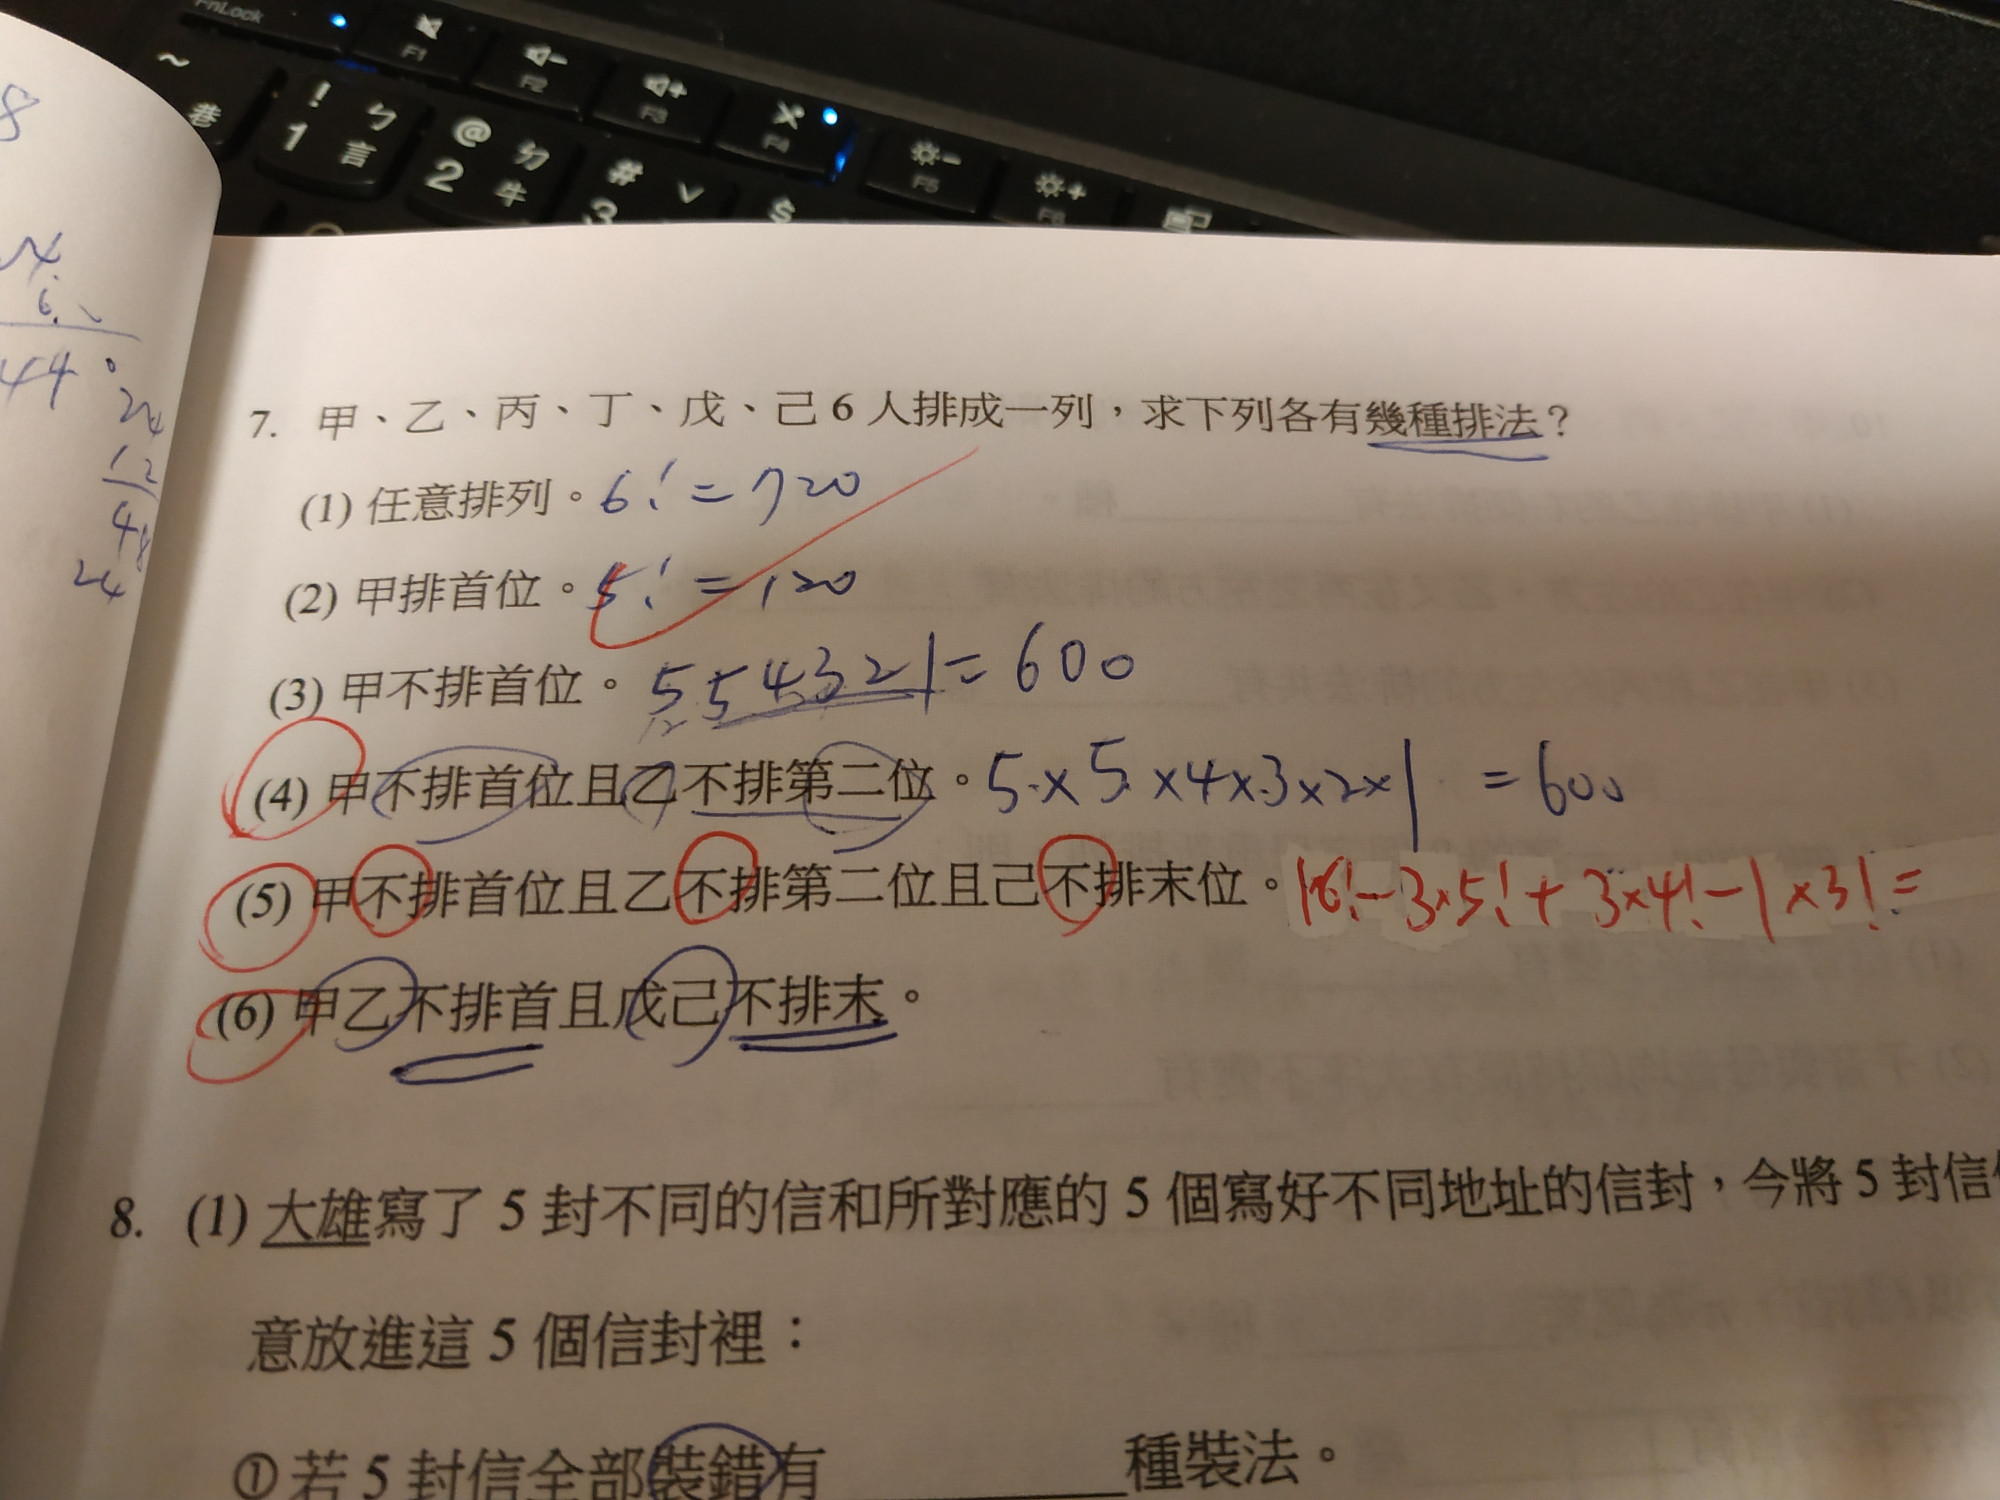 FnLock
F1
F2
F3
F4
F5
F6
~
巷
! ㄅ
1 言
@ ㄉ
2 牛
# ˇ
3
$
8
44
24
12
48
24
7. 甲、乙、丙、丁、戊、己 6 人排成一列，求下列各有幾種排法？
(1) 任意排列。6! = 720
(2) 甲排首位。5! = 120
(3) 甲不排首位。5 5 4 3 2 1 = 600
(4) 甲不排首位且乙不排第二位。5×5×4×3×2×1 = 600
(5) 甲不排首位且乙不排第二位且己不排末位。1×6!-3×5!+3×4!-1×3!=
(6) 甲乙不排首且戊己不排末。
8. (1) 大雄寫了 5 封不同的信和所對應的 5 個寫好不同地址的信封，今將 5 封信
意放進這 5 個信封裡：
① 若 5 封信全部裝錯有＿＿＿種裝法。